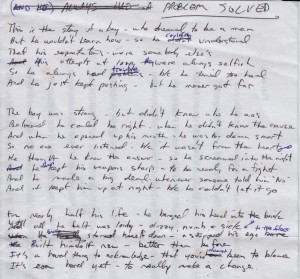 (AND HE) ALWAYS HAD A PROBLEM SOLVED
This is the story of a boy - who dreamed to be a man
But he wouldn't know how - so he couldn't understand
That his were somebody else's
His attempts at love were always selfish
So he always had trouble - but he tried too hard
And he just kept pushing - but he never got far
The boy was strong - but didn't know who he was
Believed he could be right - when he didn't know the cause
And when he opened up his mouth - he was so damn smart
So no one ever listened - 'cause it wasn't from the heart
He thought he knew the answer - so he screamed into the night
And kept his weapons sharp - to be ready for a fight
And he made a big deal whenever someone told him 'no'
And it kept him up at night - 'cause he couldn't let it go
For nearly half his life - he banged his head into the
Till all was left was - dizzy,
down - a stepped on ego
Built himself new - better than before
It's a hard thing to acknowledge - that you've been to blame
It's even hard yet - to really make a change